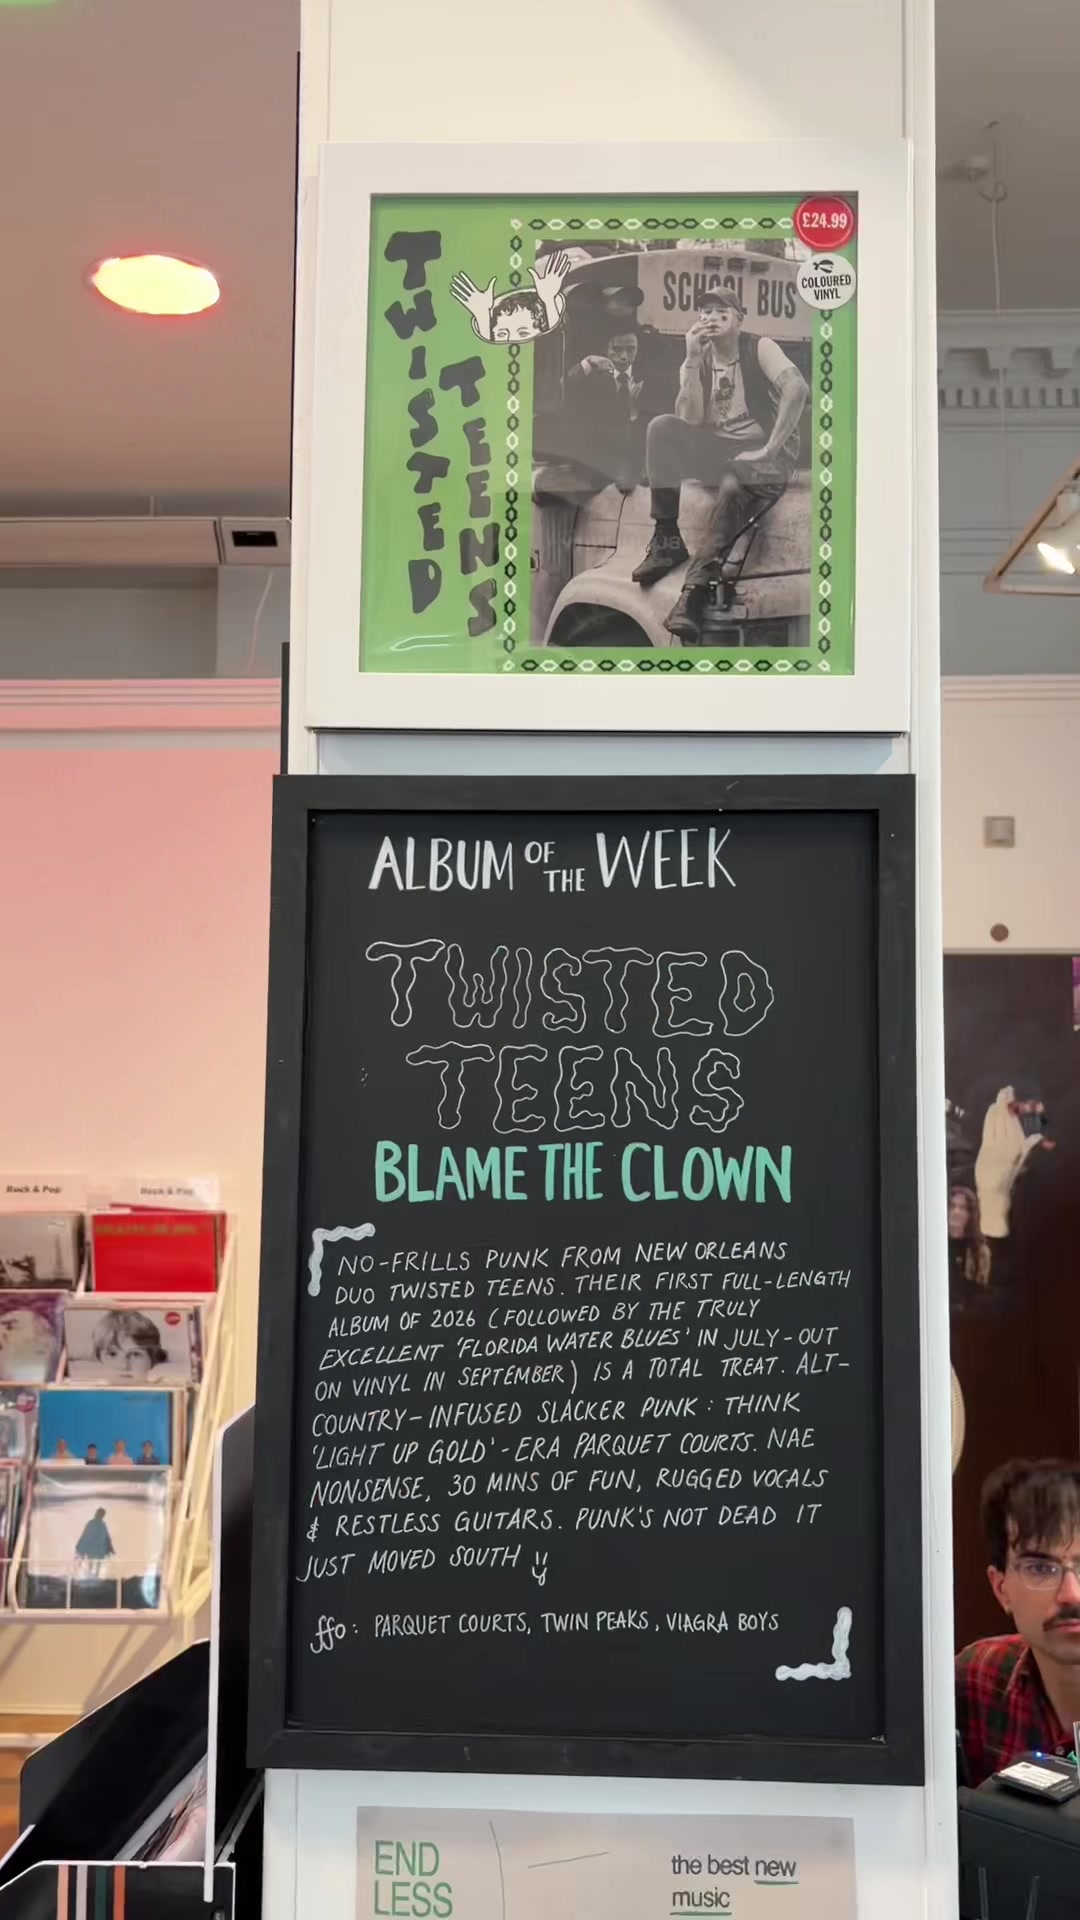 £24.99
COLOURED
VINYL
TWISTED
TEENS
SCHOOL BUS
ALBUM OF THE WEEK
TWISTED
TEENS
BLAME THE CLOWN
NO-FRILLS PUNK FROM NEW ORLEANS
DUO TWISTED TEENS. THEIR FIRST FULL-LENGTH
ALBUM OF 2026 (FOLLOWED BY THE TRULY
EXCELLENT 'FLORIDA WATER BLUES' IN JULY-OUT
ON VINYL IN SEPTEMBER) IS A TOTAL TREAT. ALT-
COUNTRY-INFUSED SLACKER PUNK: THINK
'LIGHT UP GOLD'-ERA PARQUET COURTS. NAE
NONSENSE, 30 MINS OF FUN, RUGGED VOCALS
& RESTLESS GUITARS. PUNK'S NOT DEAD IT
JUST MOVED SOUTH
ffo: PARQUET COURTS, TWIN PEAKS, VIAGRA BOYS
Rock & Pop
Rock & Pop
END
LESS
the best new
music